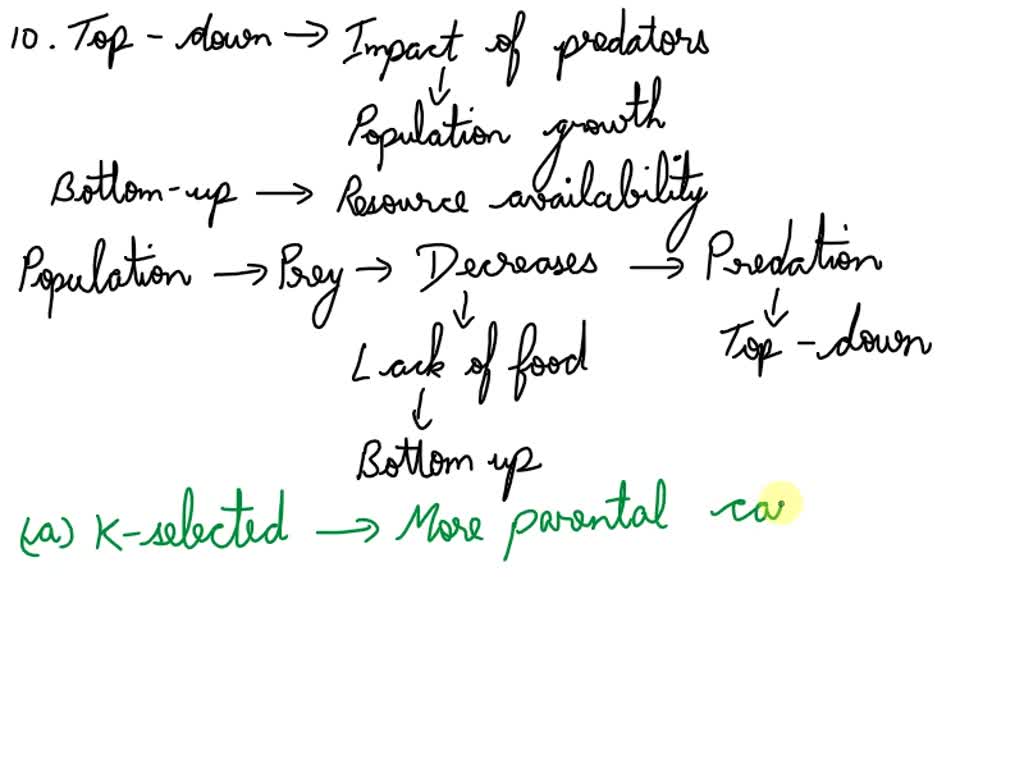 10. Top-down → Impact of predators
↓
Population growth
Bottom-up → Resource availability
Population → Prey → Decreases → Predation
↓ ↓
Lack of food Top-down
↓
Bottom up
(a) K-selected → More parental ca